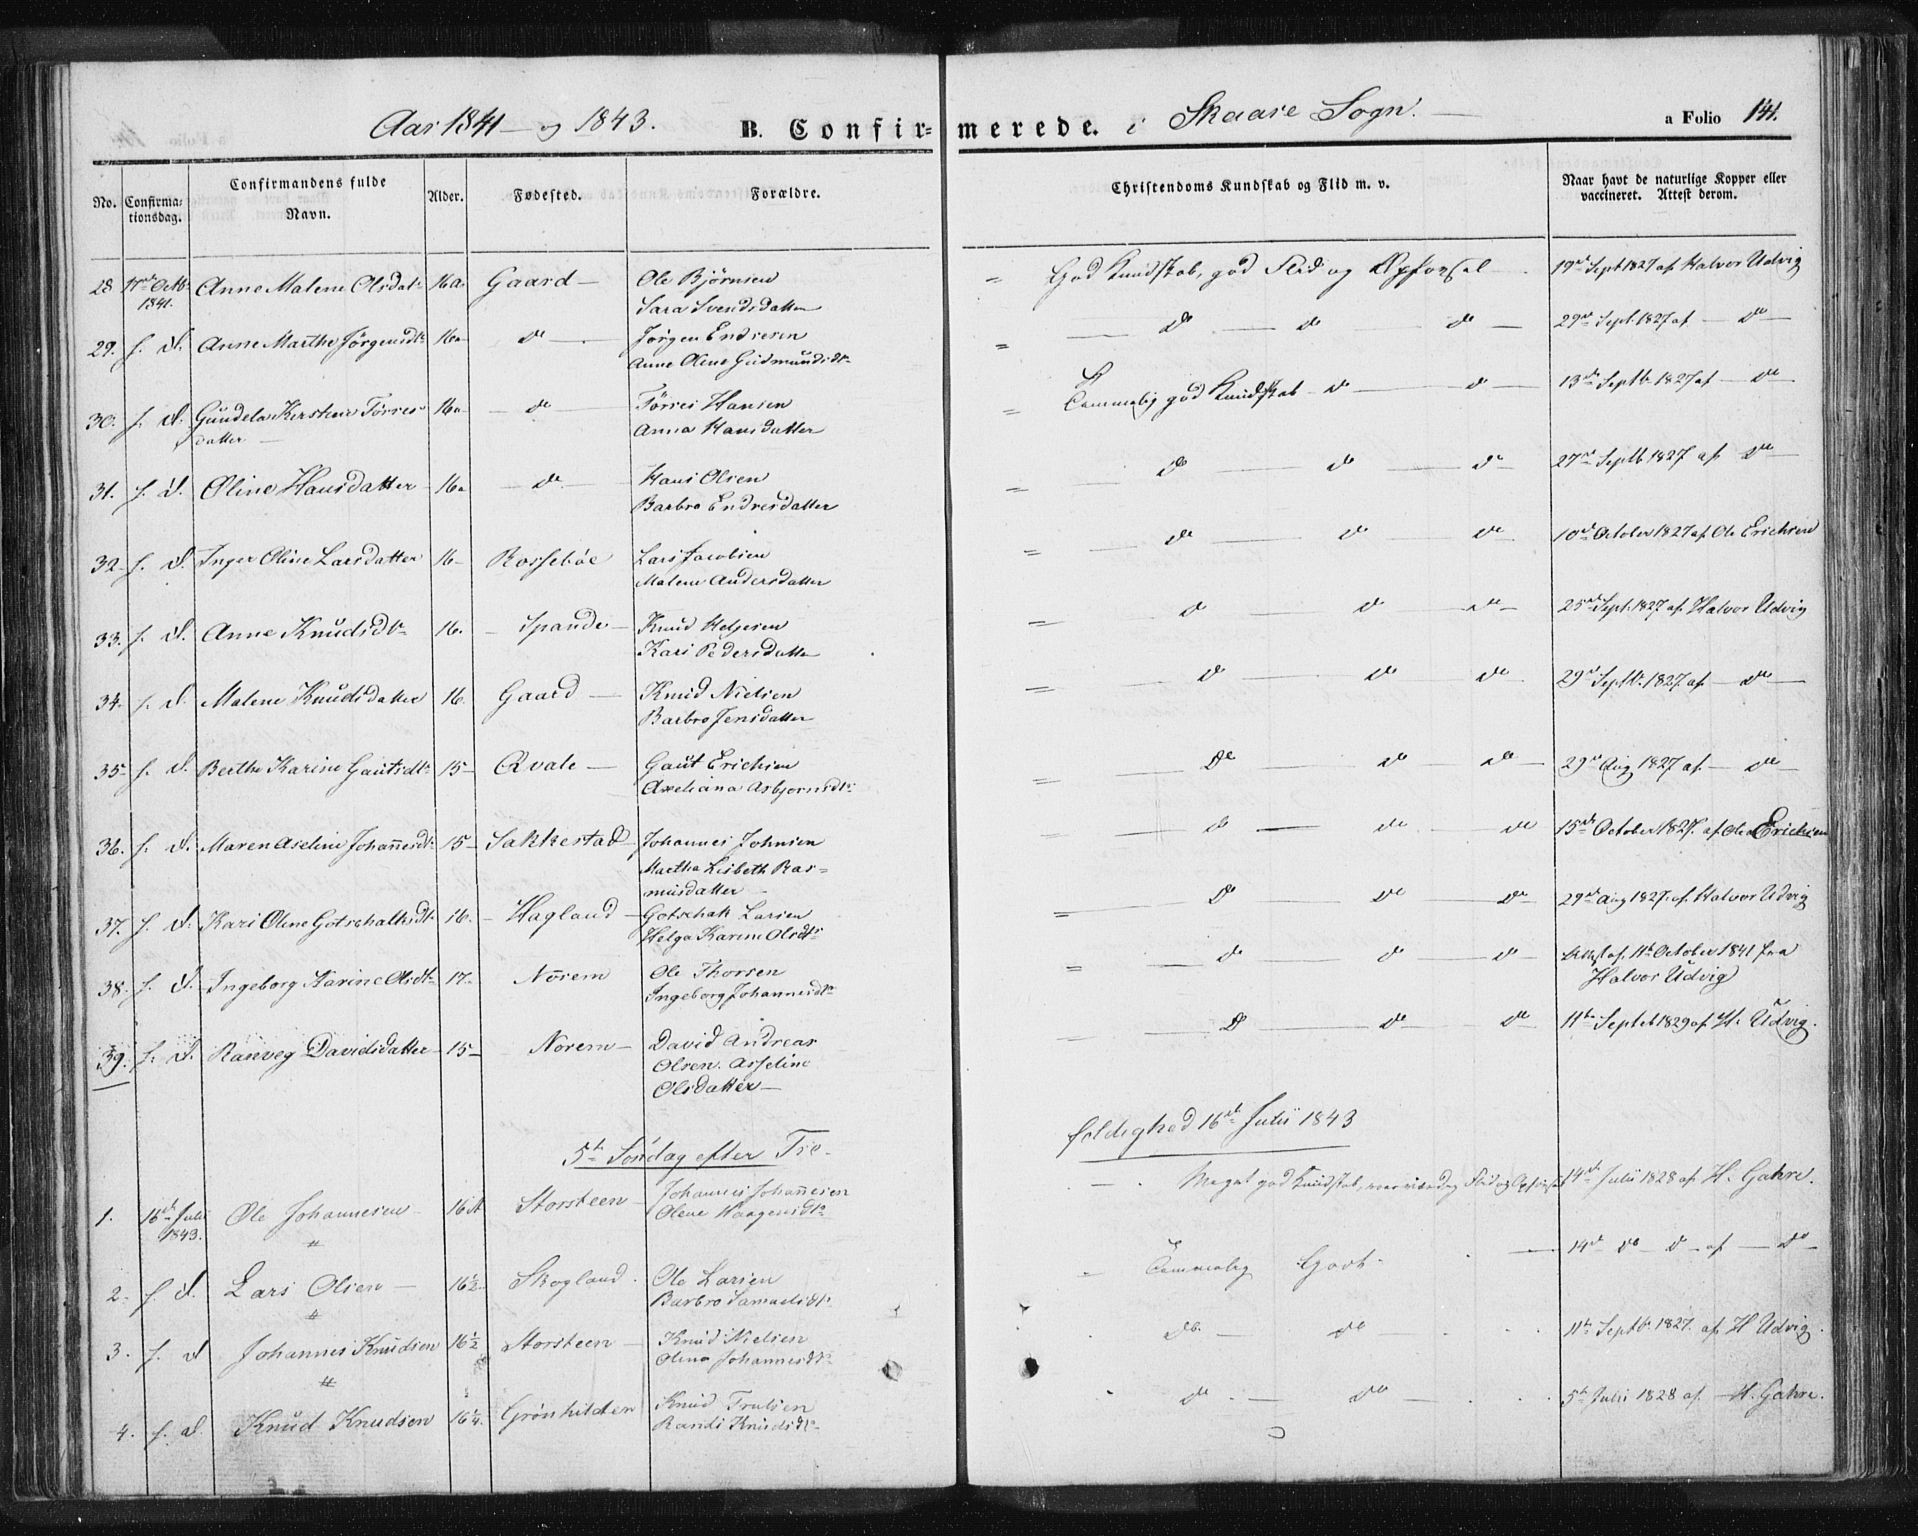 Aar 1841 og 1843. B. Confirmerede. i Skaare Sogn. a Folio 141.
No. Confirmationsdag. Confirmandens fulde Navn. Alder. Fødested. Forældre. Christendoms Kundskab og Flid m. v. Naar havt de naturlige Kopper eller vaccineret. Attest derom.
28. 17de Octbr 1841. Anne Malene Olsdatr 16 a. Gaard — Ole Bjørnsen = God Kundskab, god Flid og Opførsel 19de Sept 1827 af Halvor Udvig
Sara Svendsdatter
29. s. d. Anne Marthe Jørgensdtr 16a do — Jørgen Endresen = do — do — do — 29de Sept. 1827 af — do —
Anne Oline Gudmundsdtr
30. s. d. Gundela Kirstine Tørres- 16a — do — Tørres Hansen = Temmelig god Kundskab — do — do — 13de Septbr 1827 af — do
datter — Anna Hansdatter
31. s. d. Oline Hansdatter 16a — do — Hans Olsen = do — do — do 27de Septb 1827 af do —
Barbro Endresdatter
32. s. d. Inger Oline Larsdatter 16 — Rossebøe Lars Jacobsen = do — do — do 10de October 1827 af Ole Erichsen
Malene Andersdatter
33. s. d. Anne Knudsdtr 16. — Spande — Knud Helgesen = do — do — do — 25de Sept. 1827 af Halvor Udvig
Kari Pedersdatter
34. s. d. Malene Knudsdatter 16. Gaard — Knud Nielsen = do — do — do 29de Septbr. 1827 af — do —
Barbro Jensdatter
35 s. d. Berthe Karine Gautsdtr 15 — Qvale — Gaut Erichsen = do — do — do — 29de Aug 1827 af — do —
Axeliana Asbjørnsdtr
36. s. d. Maren Aseline Johan̄esdtr 15 — Sakkestad — Johannes Johnsen = do — do — do 15de October 1827. af Ole Erichsen
Martha Lisbeth Ras=
musdatter —
37. s. d. Kari Oline Gotschalksdtr 16. — Hagland — Gotschalk Larsen = do — do — do 29de Aug 1827. af. Halvor Udvig
Helga Karine Olsdtr
38. s. d. Ingeborg Karine Olsdtr 17. Norem Ole Thorsen = do — do — do Attest af 11te October 1841 fra
Ingeborg Johannesdtr Halvor Udvig
39. s. d. Ranveg Davidsdatter 15 — Norem — David Andreas — do — do — do 11te Septbr 1829 af H. Udvig.
Olsen. Asseline
Olsdatter —
5te Søndag efter Tre. Juli 1843
1. 16de Juli 1843. Ole Johannesen 16 A Storsteen — Johannes Johan̄esen Meget god Kundskab, Flid og Opførsel 14de Julii 1828 af H. Gahre.
Olene Haagensdtr
2. s. d. Lars Olsen — 16½ Skogland. Ole Larsen Temmelig Godt. 14de do do af — do —
Barbro Samuelsdtr
3. s. d Johannes Knudsen 16½ Storsteen — Knud Nielsen do. — do 11te Septbr. 1827. af H Udvig.
Olina Johannesdtr
4. s. d. Knud Knudsen 16¼. Grønhilden Knud Trulsen do. — do — 5te Julii 1828 af H. Gahre.
Randi Knudsdtr